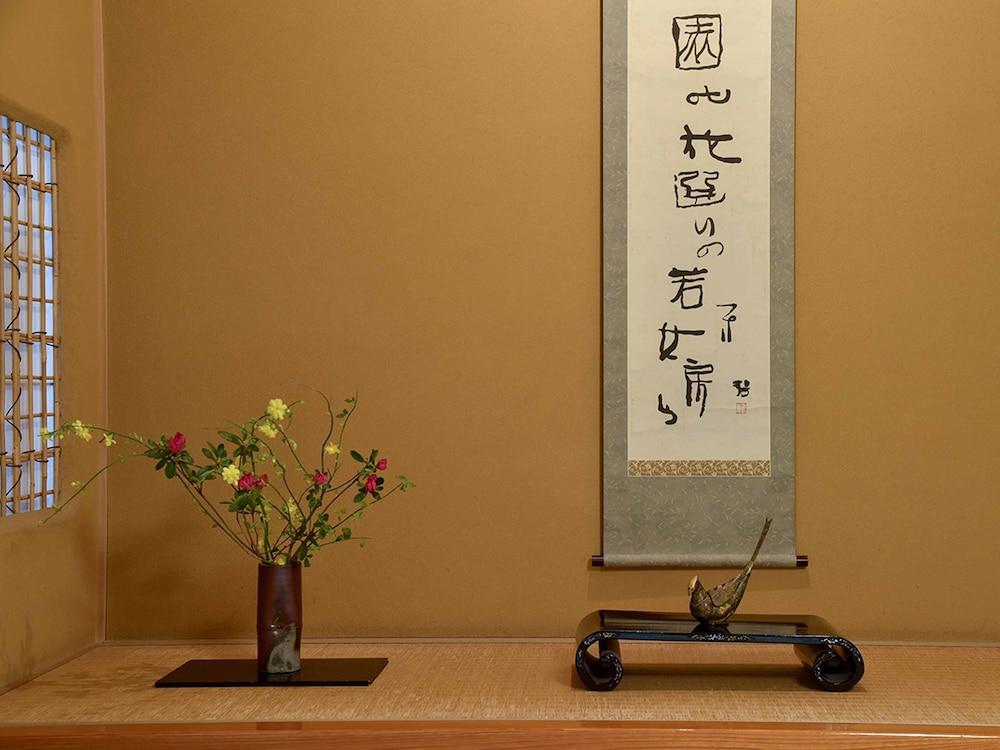 園の花選りの若女房
碧